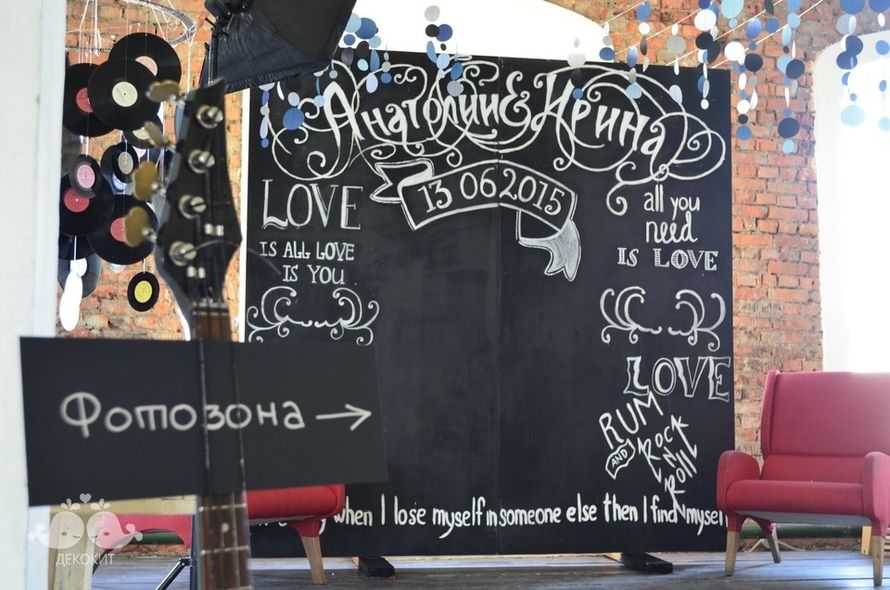 Анатолий & Ирина
13 06 2015
LOVE
IS ALL LOVE
IS YOU
all you
need
IS LOVE
LOVE
RUM
AND
ROCK
N
ROLL
Фотозона →
when I lose myself in someone else then I find myself
ДЕКОКИТ